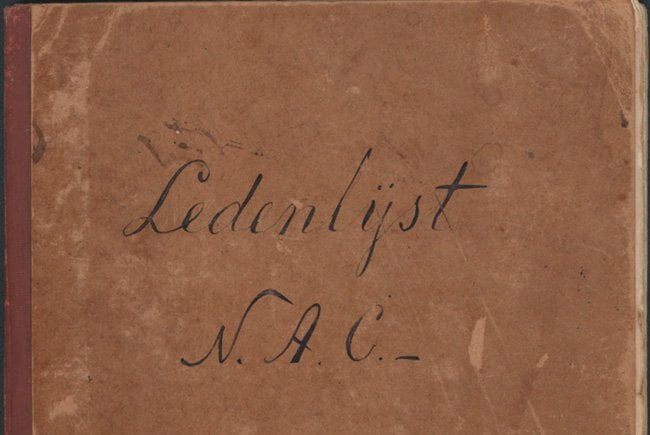 Ledenlijst
N. A. C. –